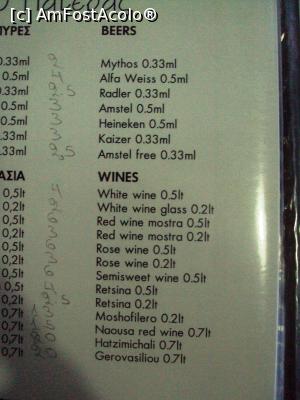 [c] AmFostAcolo®
ΠΥΡΕΣ BEERS
0.33ml 2 Mythos 0.33ml
0.5ml 4 Alfa Weiss 0.5ml
0.33ml 2,5 Radler 0.33ml
0.5ml 3 Amstel 0.5ml
0.5ml 3 Heineken 0.5ml
0.33ml 3 Kaizer 0.33ml
0.33ml 2,5 Amstel free 0.33ml
ΑΣΙΑ WINES
0,5lt 4 White wine 0.5lt
0,2lt 2 White wine glass 0.2lt
0,5lt 6 Red wine mostra 0.5lt
0,2lt 3 Red wine mostra 0.2lt
0,5lt 6 Rose wine 0.5lt
0,2lt 3 Rose wine 0.2lt
0,5lt 6 Semisweet wine 0.5lt
0,5lt 4 Retsina 0.5lt
0,2lt Retsina 0.2lt
0,2lt Moshofilero 0.2lt
0,7lt Naousa red wine 0,7lt
0,7lt Hatzimichali 0,7lt
0,7lt Gerovasiliou 0,7lt